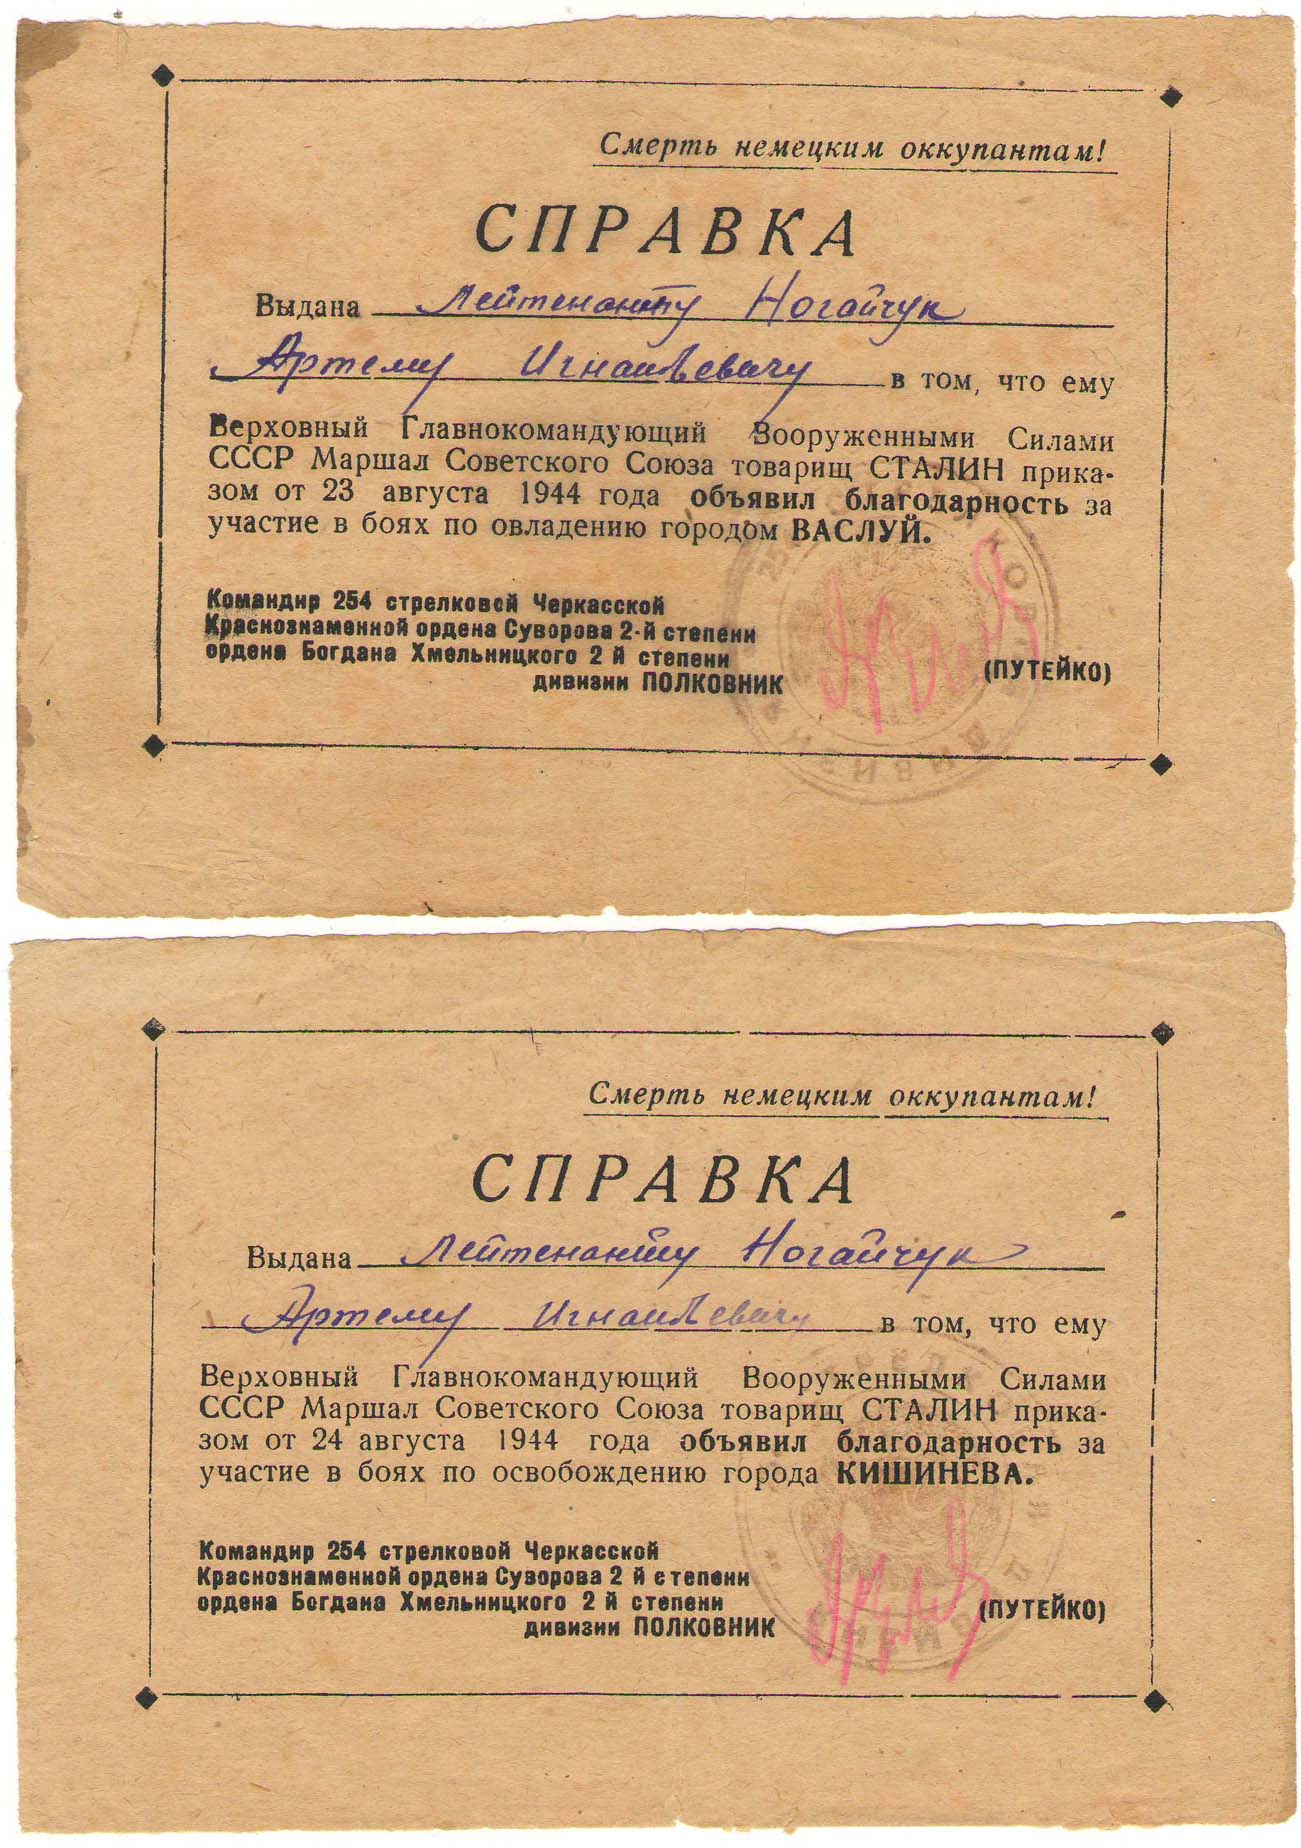 Смерть немецким оккупантам!
СПРАВКА
Выдана Лейтенанту Ногайчук
Артему Игнатьевичу в том, что ему
Верховный Главнокомандующий Вооруженными Силами
СССР Маршал Советского Союза товарищ СТАЛИН прика-
зом от 23 августа 1944 года объявил благодарность за
участие в боях по овладению городом ВАСЛУЙ.
Командир 254 стрелковой Черкасской
Краснознаменной ордена Суворова 2-й степени
ордена Богдана Хмельницкого 2 й степени
дивизии ПОЛКОВНИК (ПУТЕЙКО)
Смерть немецким оккупантам!
СПРАВКА
Выдана Лейтенанту Ногайчук
Артему Игнатьевичу в том, что ему
Верховный Главнокомандующий Вооруженными Силами
СССР Маршал Советского Союза товарищ СТАЛИН прика-
зом от 24 августа 1944 года объявил благодарность за
участие в боях по освобождению города КИШИНЕВА.
Командир 254 стрелковой Черкасской
Краснознаменной ордена Суворова 2 й степени
ордена Богдана Хмельницкого 2 й степени
дивизии ПОЛКОВНИК (ПУТЕЙКО)